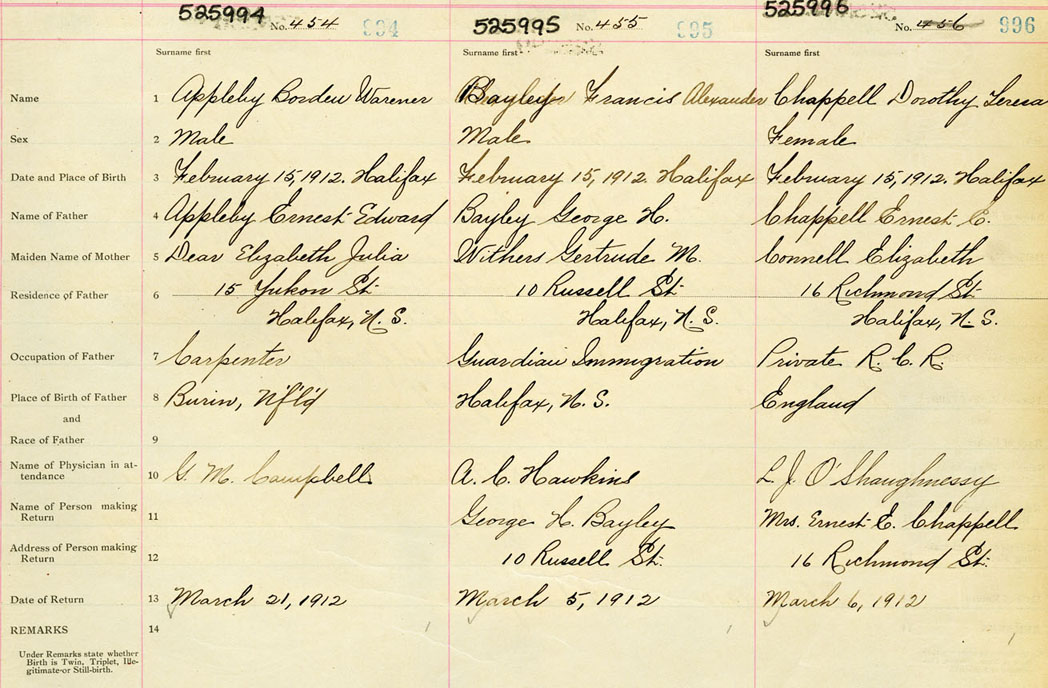 525994 No. 454 994 525995 No. 455 995 525996 No. 456 996
Surname first Surname first Surname first
Name 1 Appleby Borden Warener Bayley Francis Alexander Chappell Dorothy Teresa
Sex 2 Male Male Female
Date and Place of Birth 3 February 15, 1912. Halifax February 15, 1912. Halifax February 15, 1912. Halifax
Name of Father 4 Appleby Ernest Edward Bayley George H. Chappell Ernest E.
Maiden Name of Mother 5 Dear Elizabeth Julia Withers Gertrude M. Connell Elizabeth
Residence of Father 6 15 Yukon St. 10 Russell St. 16 Richmond St.
Halifax, N. S. Halifax, N. S. Halifax, N. S.
Occupation of Father 7 Carpenter Guardian Immigration Private R. C. R.
Place of Birth of Father 8 Burin, Nf'l'd Halifax, N. S. England
and
Race of Father 9
Name of Physician in at-
tendance 10 G. M. Campbell A. C. Hawkins L. J. O'Shaughnessy
Name of Person making
Return 11 George H. Bayley Mrs. Ernest E. Chappell
Address of Person making
Return 12 10 Russell St. 16 Richmond St.
Date of Return 13 March 21, 1912 March 5, 1912 March 6, 1912
REMARKS 14
Under Remarks state whether
Birth is Twin, Triplet, Ille-
gitimate or Still-birth.